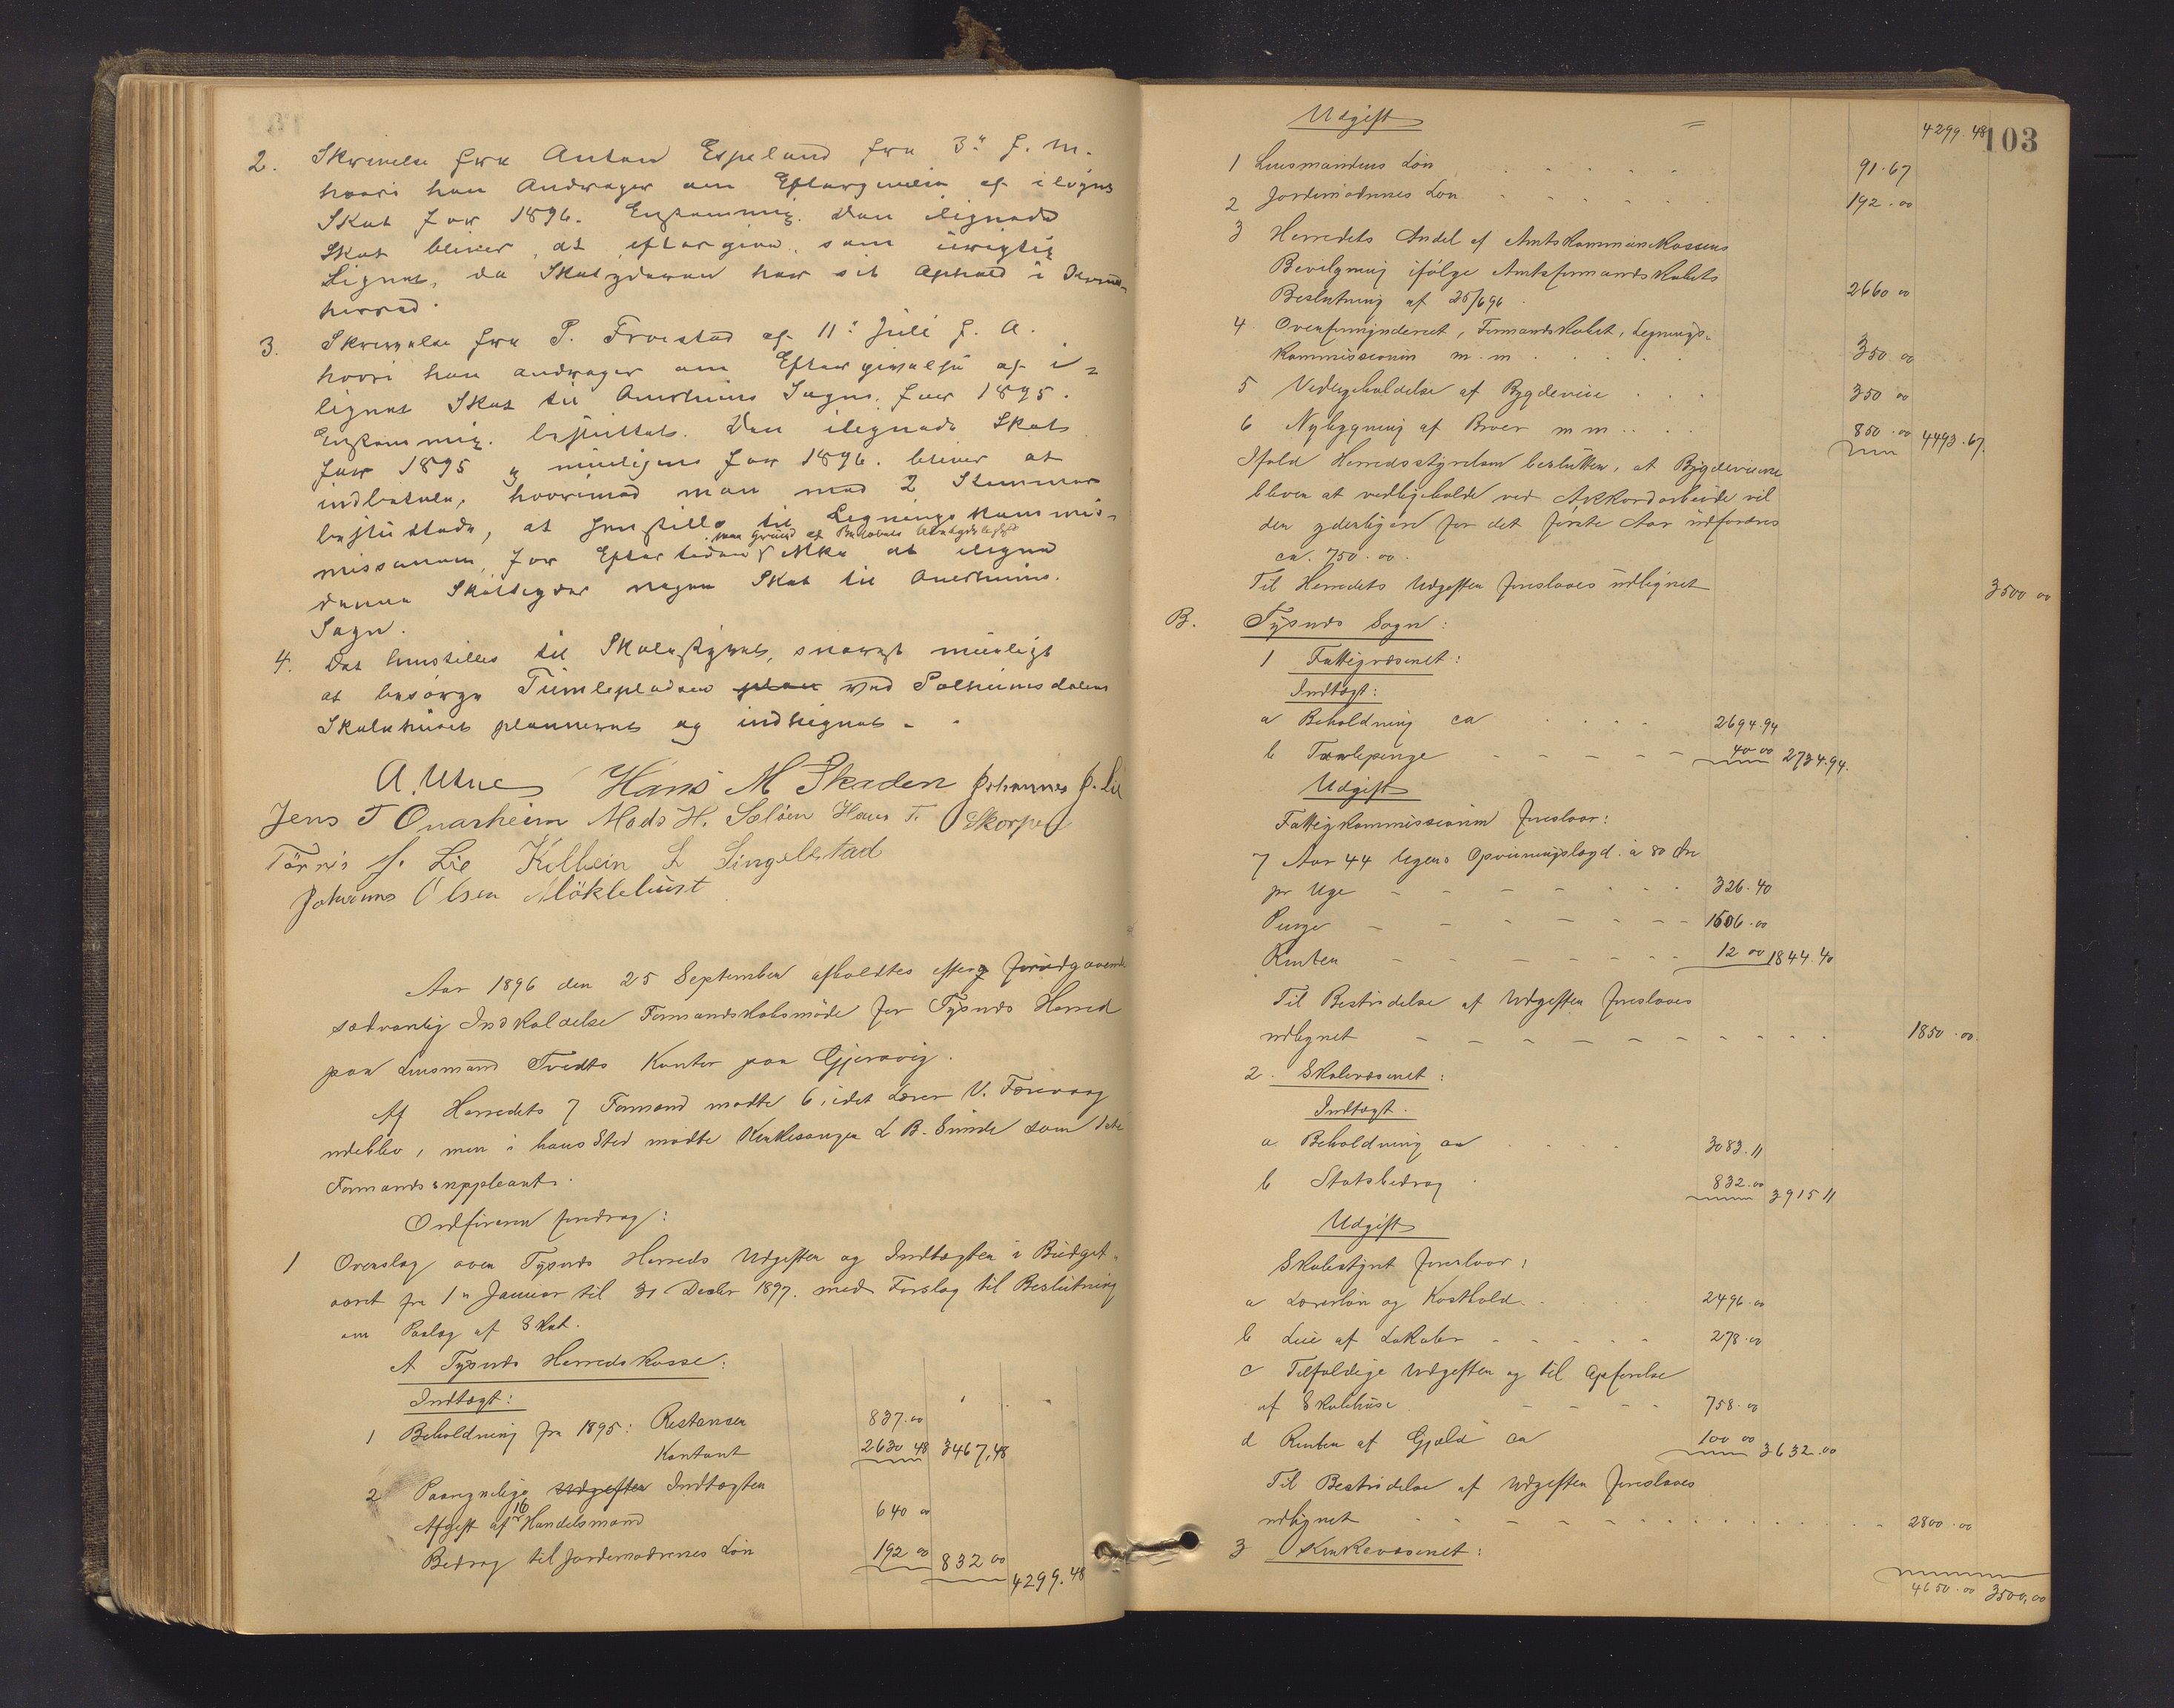 2. Skrivelse fra Anton Espeland fra 3' f. m.
hvori han Andrager om Eftergivelse af ilignet
Skat for 1896. Enstemmig. Den ilignede
Skat bliver at eftergive, som urigtig
Lignet, da Skatyderen har sit Ophold i
herred.
3. Skrivelse fra P. Troestad af 11' Juli f. A.
hvori han andrager om Eftergivelse af i-
lignet Skat til Onarheims Sogn for 1895.
Enstemmig. besluttet. Den ilignede Skat
for 1895 og muligens for 1896. bliver at
indbetale, hvorimod man med 2 Stemmer
besluttede, at henstille til Ligningskommis-
missionen, for Eftertiden paa Grund af ikke at iligne
denne Skatteyder nogen Skat til Onarheims.
Sogn.
4. Det henstilles til Skolestyret, snarest muligt
at besørge Tumlepladsen plan ved Solheimsdalens
Skolehuset planeret og indhegnet.
A. Utne Hans M Skaden Johannes J. Lie
Jens T Onarheim Mads H. Sæløen Hans T. Skorpen
Tørris J. Lie Kilbein S Singelstad
Johannes Olsen Møklebust
Aar 1896 den 25 September afholdtes efter forudgaaende
sædvanlig Indkaldelse Formandskabsmøde for Tysnes Herred
paa Lensmand Tvedts Kontor paa Gjeravig.
Af Herredets 7 Formænd mødte 6, idet Lærer V. Færevaag
udeblev, men i hans Sted mødte Kirkesanger L B. Sunde som 1ste
Formandssuppleant.
Ordføreren foredrog:
1 Overslag over Tysnes Herreds Udgifter og Indtægter i Budget-
aaret fra 1' Januar til 31 Decbr 1897. med Forslag til Beslutning
om Paalæg af Skat.
A Tysnes Herredskasse:
Indtægt:
1 Beholdning fra 1895: Restancer 837.00
Kontant 2630 48 3467,48
2 Paaregnelige Udgifter Indtægter
Afgift af 16 Handelsmænd 640 00
Bedrag til Jordemødrenes Løn 192 00 832 00 4299.48
103
Udgift = 4299.48
1 Lensmandens Løn 91.67
2 Jordemødrenes Løn 192.00
3 Herredets Andel af Amtskommunekassens
Bevilgning ifølge Amtsformandskabets
Beslutning af 25/6 96 2660 00
4. Overformynderiet, Formandskabet, Lignings-
kommissionen m. m 350 00
5 Vedligeholdelse af Bygdeveie 350 00
6 Nybygning af Broer m m 850.00 4493.67.
Ifald Herredsstyrelsen beslutter, at Bygdeveiene
bliver at vedligeholde ved Akkordarbeide vil
der yderligere for det første Aar udfordres
ca. 750.00.
Til Herredets Udgifter foreslaaes udlignet 3500 00
B. Tysnes Sogn:
1 Fattigvæsenet:
Indtægt:
a Beholdning ca 2694.94
b Tamlepenge 40.00 2734.94.
Udgift
Fattigkommissionen foreslaar:
7 Aar 44 Ugers Opvisningslægd. a 80 Øre
pr Uge 326.40
Penge 1506.00
Renter 12 00 1844.40
Til Bestridelse af Udgifter foreslaaes
udlignet 1850.00.
2. Skolevæsenet:
Indtægt.
a. Beholdning ca 3083.11
b Statsbedrag 832.00 3915 11
Udgift
Skolestyret foreslaar:
a Lærerløn og Kosthold 2496.00
b Leie af Lokaler 278.00
c Tilfældige Udgifter og til Opførelse
af Skolehuse 758.00
d Renter af Gjæld ca 100 00 3632.00
Til Bestridelse af Udgifter foreslaaes
udlignet 2800.00
3 Kirkevæsenet:
4650.00 3500,00